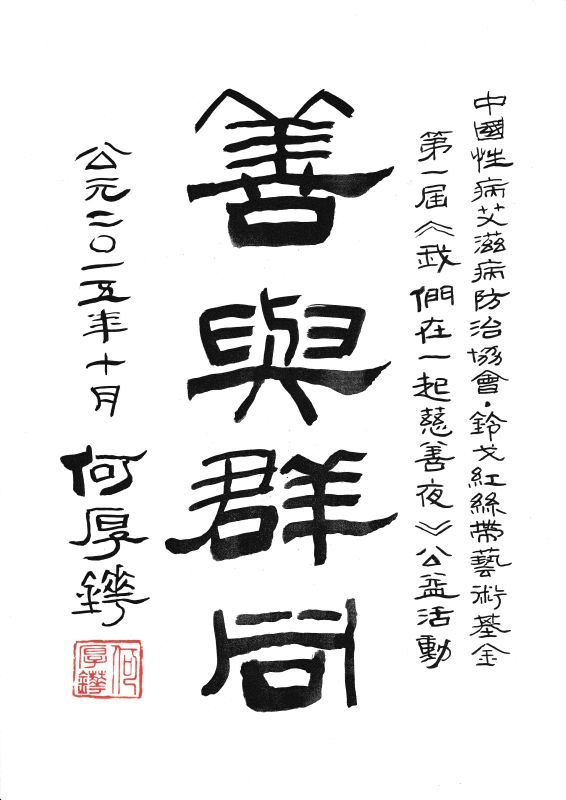 中國性病艾滋病防治協會·鈴戈紅絲帶藝術基金
第一届《我們在一起慈善夜》公益活動
善與群同
公元二〇一五年十月
何厚鏵
何厚鏵